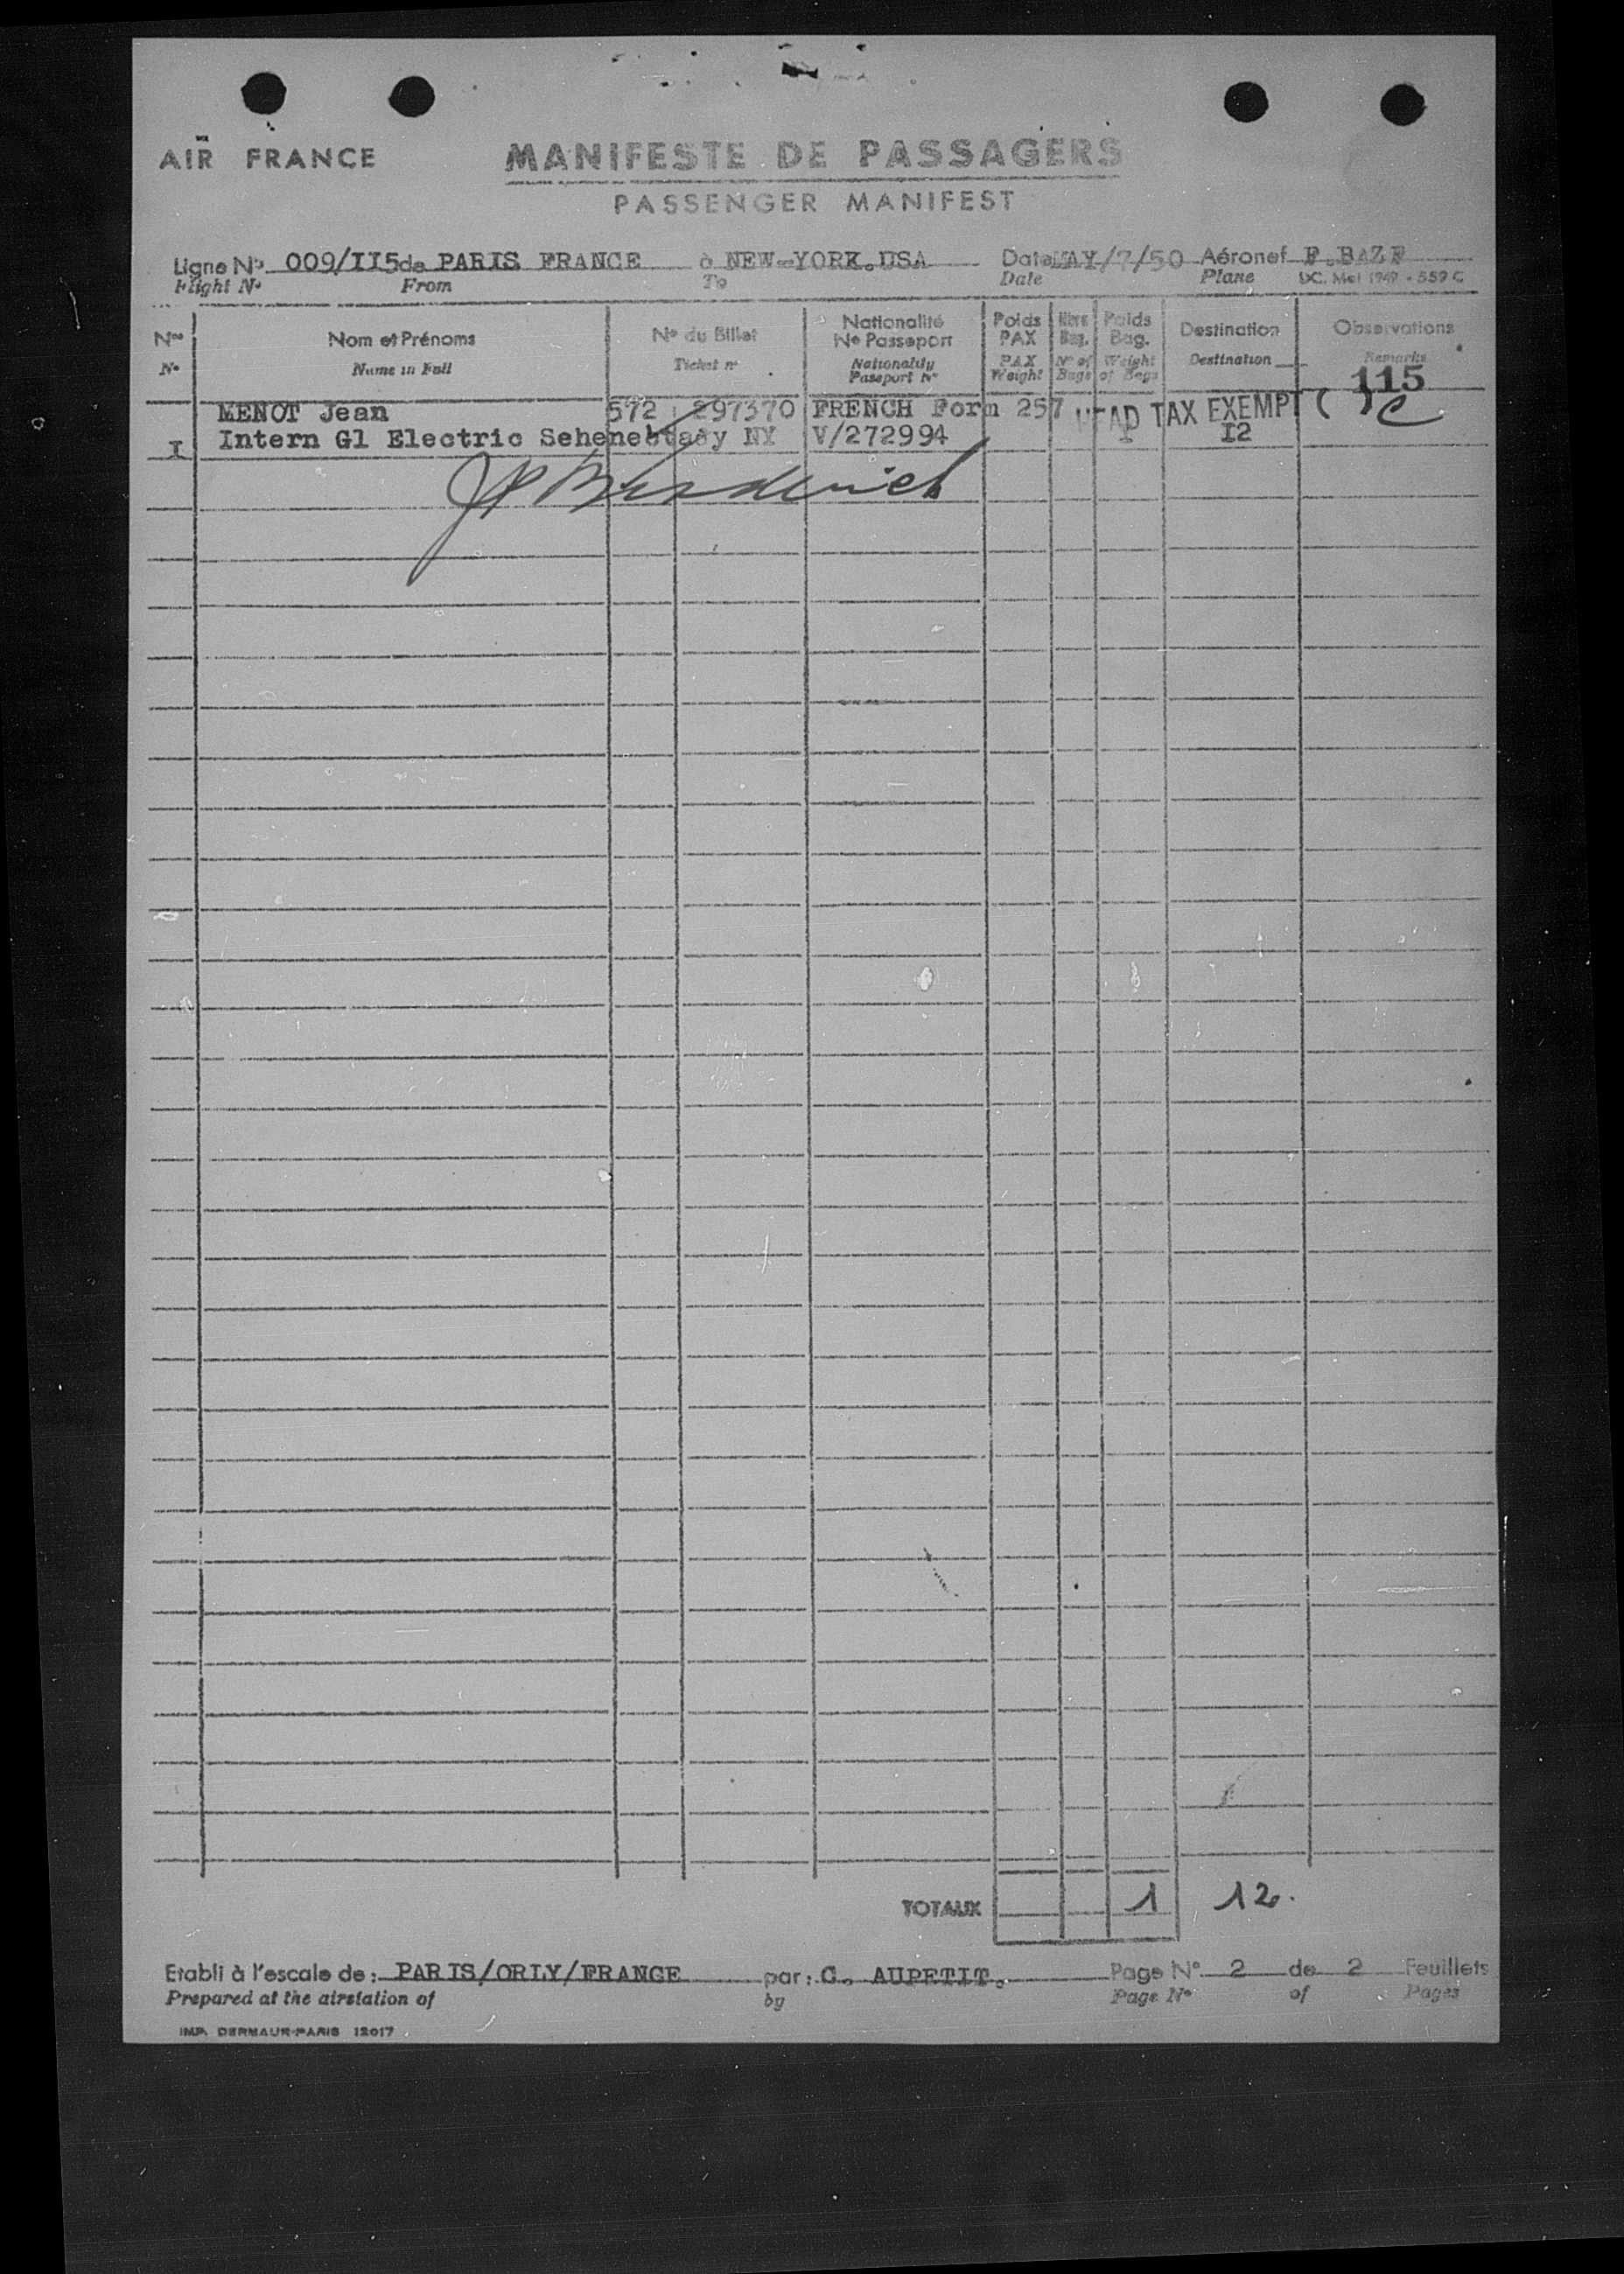 AIR FRANCE
MANIFESTE DE PASSAGERS
PASSENGER MANIFEST
Ligne No. 009/II5 de PARIS FRANCE à NEW-YORK.USA Date MAY/7/50 Aéronef F.BAZF
Flight No From To Date Plane DC. Mel 1949 - 559 C
Nos Nom et Prénoms No du Billet Nationalité No Passeport Poids PAX Nbre Bag. Poids Bag. Destination Observations
No Name in Full Ticket no Nationality Passport No PAX Weight No of Bags Weight of Bags Destination Remarks
115
MENOT Jean 572 297370 FRENCH Form 257 HEAD TAX EXEMPT ( ) C
I Intern Gl Electric Sehenectady NY V/272994 I I2
TOTAUX 1 12.
Etabli à l'escale de: PARIS/ORLY/FRANCE par: C. AUPETIT. Page No 2 de 2 Feuillets
Prepared at the airstation of by Page No of Pages
IMP. DERMAUR-PARIS 12017